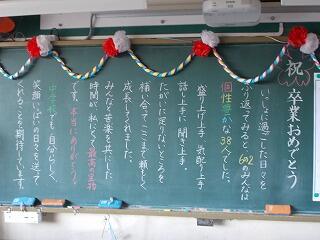 祝 卒業おめでとう
いっしょに過ごした日々を
ふり返ってみると、6の2のみんなは
個性豊かな38人でした。
盛り上げ上手、気配り上手、
話し上手に聞き上手。
たがいに足りないところを
補い合って、ここまで頼もしく
成長してくれました。
みんなと苦楽を共にした
時間が、私にとって最高の宝物
です。本当にありがとう。
中学校でも自分らしく、
笑顔いっぱいの日々を送って
くれることを期待しています。